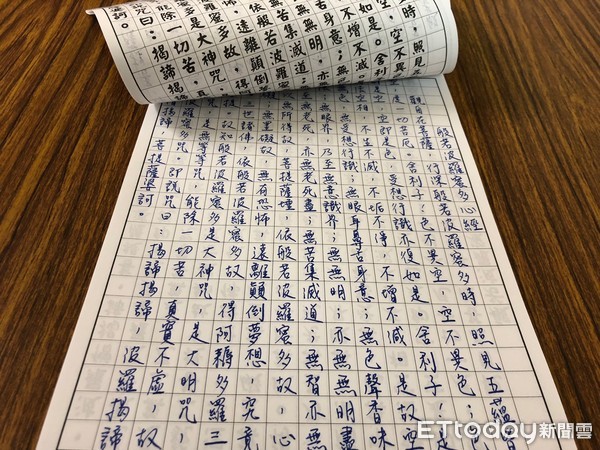 時，照見
空，空不異
如是。舍利
不增不減。
無明，亦
苦集滅道；
依般若波羅
遠離顛倒
蜜多故，得
是大神咒，
能除一切苦
咒曰：揭諦揭
般若波羅蜜多心經
觀自在菩薩，行深般若波羅蜜多時，照見五蘊
度一切苦厄。舍利子！色不異空，空不異色；
是空，空即是色。受想行識，亦復如是。舍利子！是
空相，不生不滅，不垢不淨，不增不減。是故空
是想行識，無眼耳鼻舌身意；無色聲香味
無眼界，乃至無意識界；無無明，亦無無明盡
無老死，亦無老死盡；無苦集滅道；無智亦無
無所得故，菩提薩埵，依般若波羅蜜多故，心
無罣礙故，無有恐怖，遠離顛倒夢想，究竟
三世諸佛，依般若波羅蜜多故，得阿耨多羅三
提。故知般若波羅蜜多，是大神咒，是大明咒，
是無等等咒，能除一切苦，真實不虛，故
波羅蜜多咒。即說咒曰：揭諦揭諦，波羅揭諦
揭諦，菩提薩婆訶。
ETtoday新聞雲